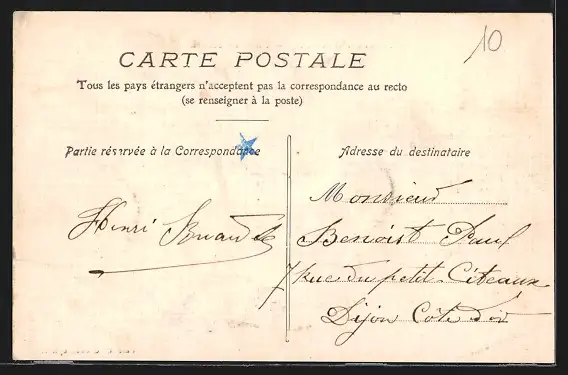 10
CARTE POSTALE
Tous les pays étrangers n'acceptent pas la correspondance au recto
(se renseigner à la poste)
Partie réservée à la Correspondance
Adresse du destinataire
Henri
Monsieur
Benoist Paul
7 Rue du petit-Citeaux
Dijon Côte d'or